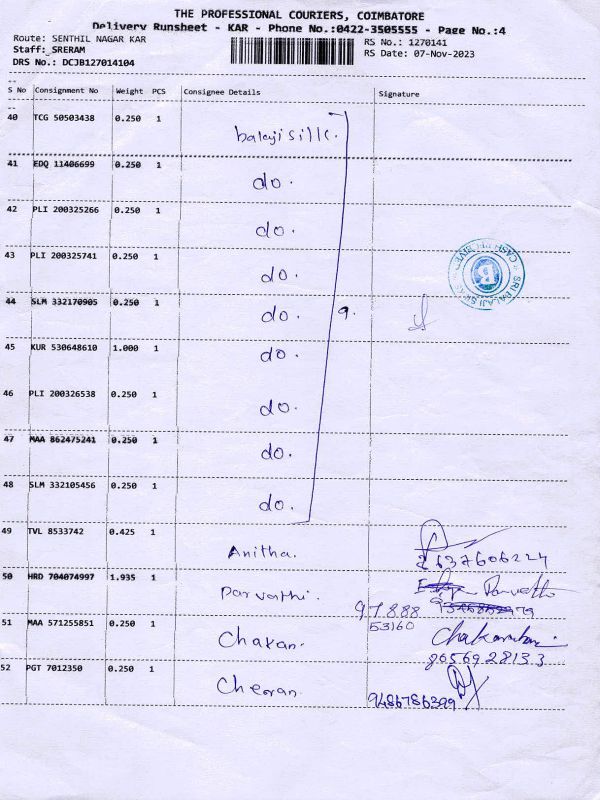 THE PROFESSIONAL COURIERS, COIMBATORE
Delivery Runsheet - KAR - Phone No.:0422-3505555 - Page No.:4
Route: SENTHIL NAGAR KAR RS No.: 1270141
Staff: SRERAM RS Date: 07-Nov-2023
DRS No.: DCJB127014104
S No Consignment No Weight PCS Consignee Details Signature
40 TCG 50503438 0.250 1 balaji silk.
41 EDQ 11406699 0.250 1 do.
42 PLI 200325266 0.250 1 do.
43 PLI 200325741 0.250 1 do.
44 SLM 332170905 0.250 1 do. 9.
45 KUR 530648610 1.000 1 do.
46 PLI 200326538 0.250 1 do.
47 MAA 862475241 0.250 1 do.
48 SLM 332105456 0.250 1 do.
49 TVL 8533742 0.425 1 Anitha. 2637606224
50 HRD 704074997 1.935 1 Parvathi. 97888
53160
51 MAA 571255851 0.250 1 Chakan.
8056928133
52 PGT 7012350 0.250 1 Cheran. 9486786399